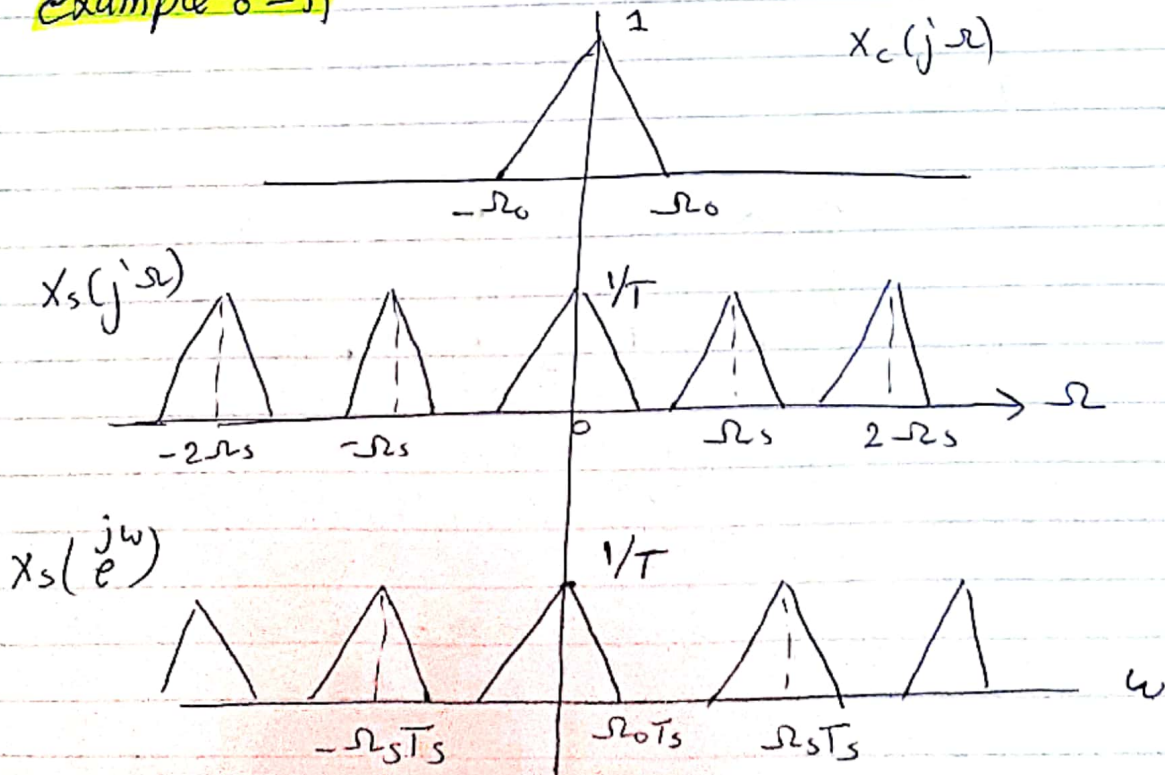 example
1
Xc(jΩ)
-Ωo Ωo
Xs(jΩ)
1/T
Ω
-2Ωs -Ωs 0 Ωs 2Ωs
Xs(e^jω)
1/T
ω
-ΩsTs ΩoTs ΩsTs